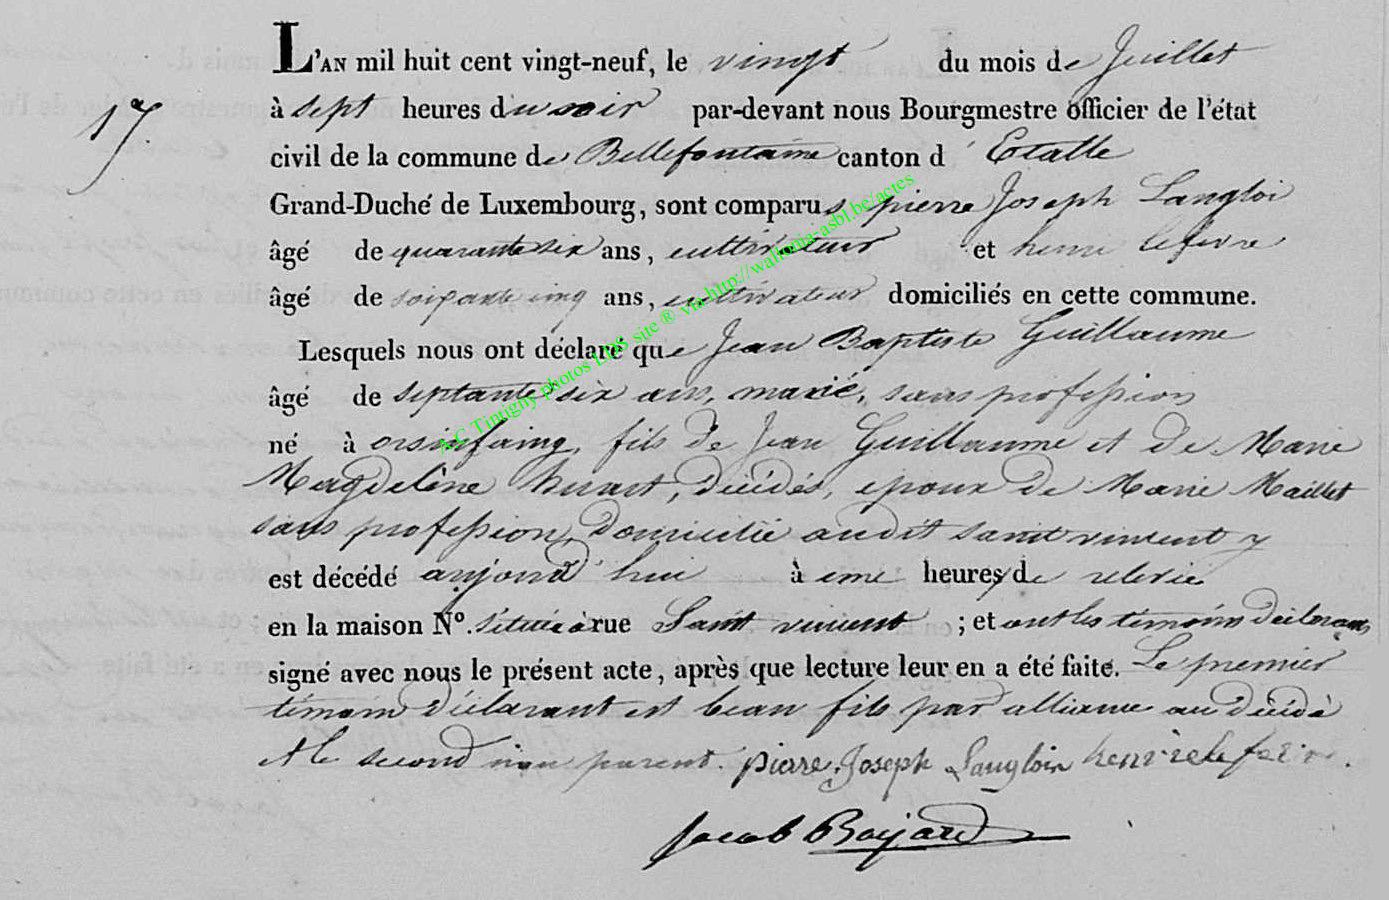 L'AN mil huit cent vingt-neuf, le vingt du mois de Juillet
17e
à sept heures du soir par-devant nous Bourgmestre officier de l'état
civil de la commune de Bellefontaine canton d'Etalle
Grand-Duché de Luxembourg, sont comparus pierre Joseph Langloi
âgé de quarante six ans, cultivateur et henri lefevre
âgé de soixante cinq ans, cultivateur domiciliés en cette commune.
Lesquels nous ont déclaré que Jean Baptiste Guillaume
âgé de septante six ans, marié, sans profession
né à orsinfaing, fils de Jean Guillaume et de Marie
Magdelène huart, décédés, epoux de Marie Maillet
sans profession, domicilié audit saint vincent y
est décédé aujourd'hui à une heures de relevée
en la maison N°. située à rue Saint vincent ; et ont les témoins déclarans
signé avec nous le présent acte, après que lecture leur en a été faite. Le premier
témoin déclarant est beau fils par alliance au décédé
et le second non parent. pierre Joseph Langloix henri
Jacob Bayard
A.C Tintigny photos LDS site ® via http://wallonia-asbl.be/actes